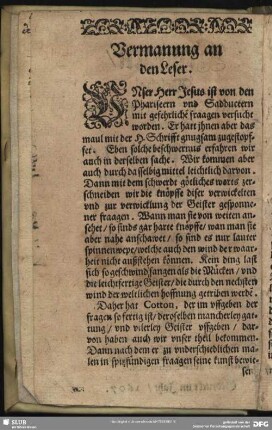 Vermanung an
den Leser.
UNser Herr Jesus ist von den
Phariseern vnd Sadduceern
mit gefehrliche fraagen versucht
worden. Er hatt jhnen aber das
maul mit der H. Schrifft gnugsam zugestopf-
fet. Eben solche beschwernuß erfahren wir
auch in derselben sache. Wir kommen aber
auch durch dasselbig mittel leichtlich darvon.
Dann mit dem schwerdt götliches worts zer-
schneiden wir die knöpffe diser verwickelten
vnd zur verwicklung der Geister gesponne-
ner fraagen. Wann man sie von weiten an-
sehet / so sinds gar harte knöpffe / wan man sie
aber nahe anschawet / so sind es nur lauter
spinnenwepe / welche auch den wind der war-
heit nicht außstehen können. Kein ding last
sich so geschwind fangen als die Mücken / vnd
die leichtfertige Geister / die durch den nechsten
wind der weltlichen hoffnung getriben werde.
Daher hat Cotton, der im vffgeben der
fragen so fertig ist / deroselben mancherley gat-
tung / vnd vilerley Geister vffgeben / dar-
von haben auch wir vnser theil bekommen.
Dann nach dem er zu vnderschiedlichen ma-
len in spizfündigen fraagen seine kunst bewie-
sen
SLUB